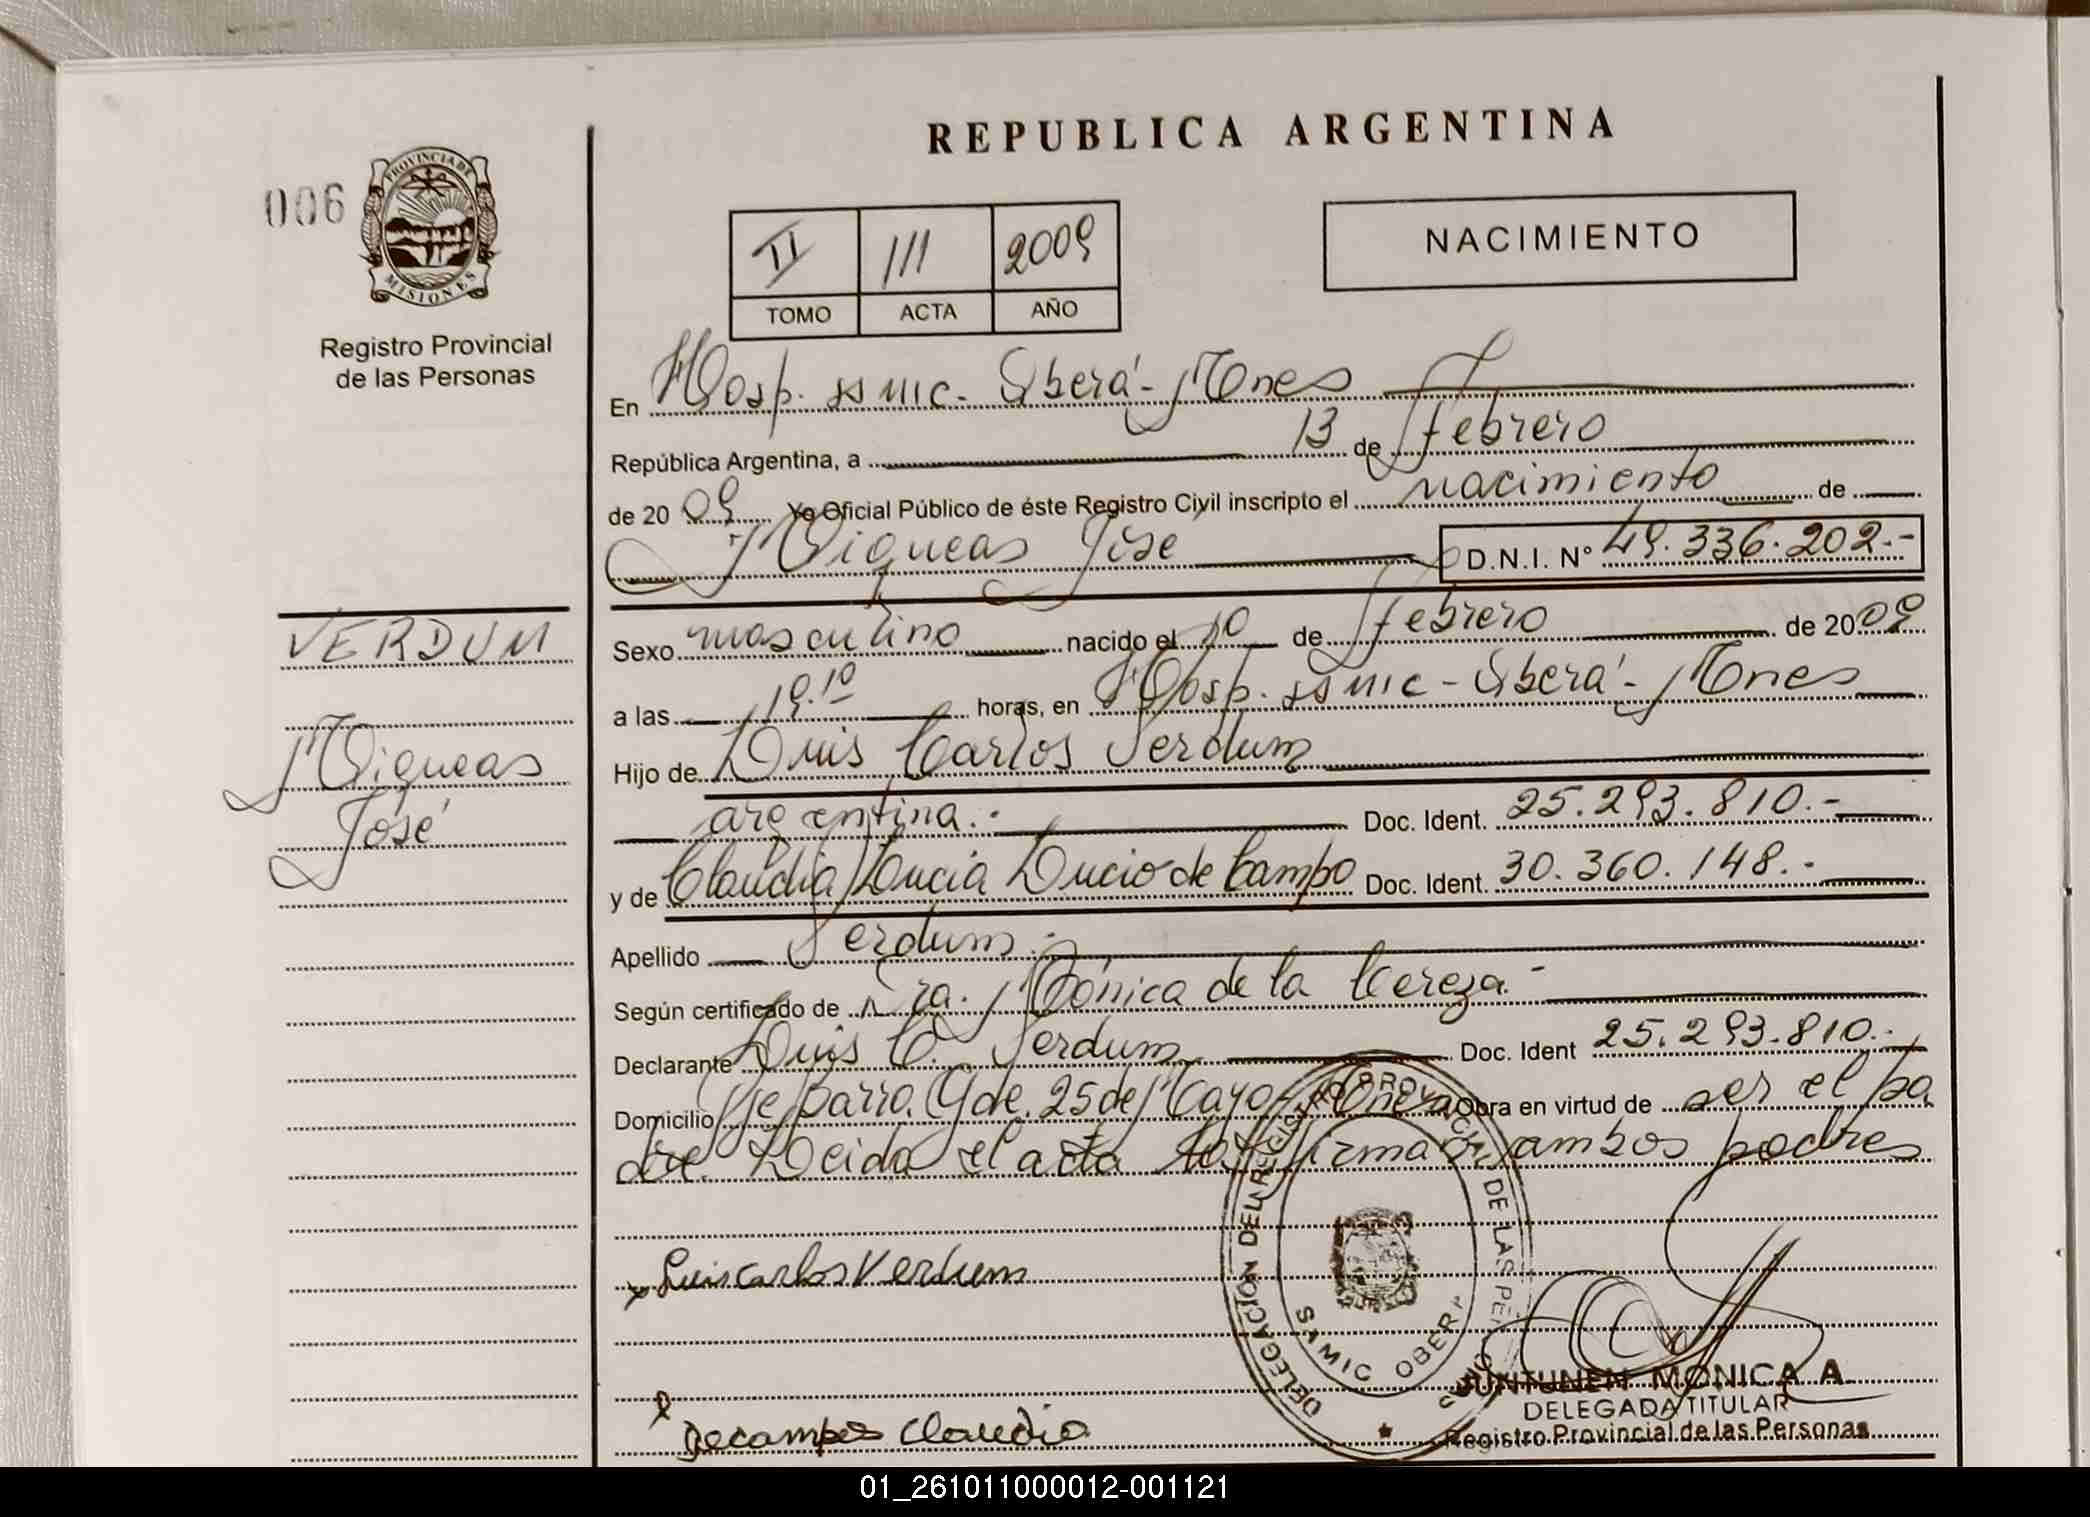 REPUBLICA ARGENTINA
006
PROVINCIA DE
MISIONES
Registro Provincial
de las Personas
II 111 2009
TOMO ACTA AÑO
NACIMIENTO
En Hosp. SAMIC - Oberá - Mnes
República Argentina, a 13 de febrero
de 2009 Yo Oficial Público de éste Registro Civil inscripto el nacimiento de
Miqueas José D.N.I. Nº 49.336.202.-
VERDUM
Miqueas
José
Sexo masculino nacido el 10 de febrero de 2009
a las 19.10 horas, en Hosp. SAMIC - Oberá - Mnes
Hijo de Luis Carlos Verdum
argentina.- Doc. Ident. 25.293.810.-
y de Claudia Lucia Lucio de Campo Doc. Ident. 30.360.148.-
Apellido Verdum.-
Según certificado de Dra. Mónica de la Cereza.-
Declarante Luis C. Verdum Doc. Ident 25.293.810.-
Domicilio Gde. 25 de Mayo - Mnes Obra en virtud de ser el pa
dre. Leida el acta la firman ambos padres
x Luis carlos Verdum
Decampos Claudia
DELEGACION DEL REGISTRO PROVINCIAL DE LAS PERSONAS
SAMIC OBERA
JUNTUNEN MONICA A.
DELEGADA TITULAR
Registro Provincial de las Personas
01_261011000012-001121